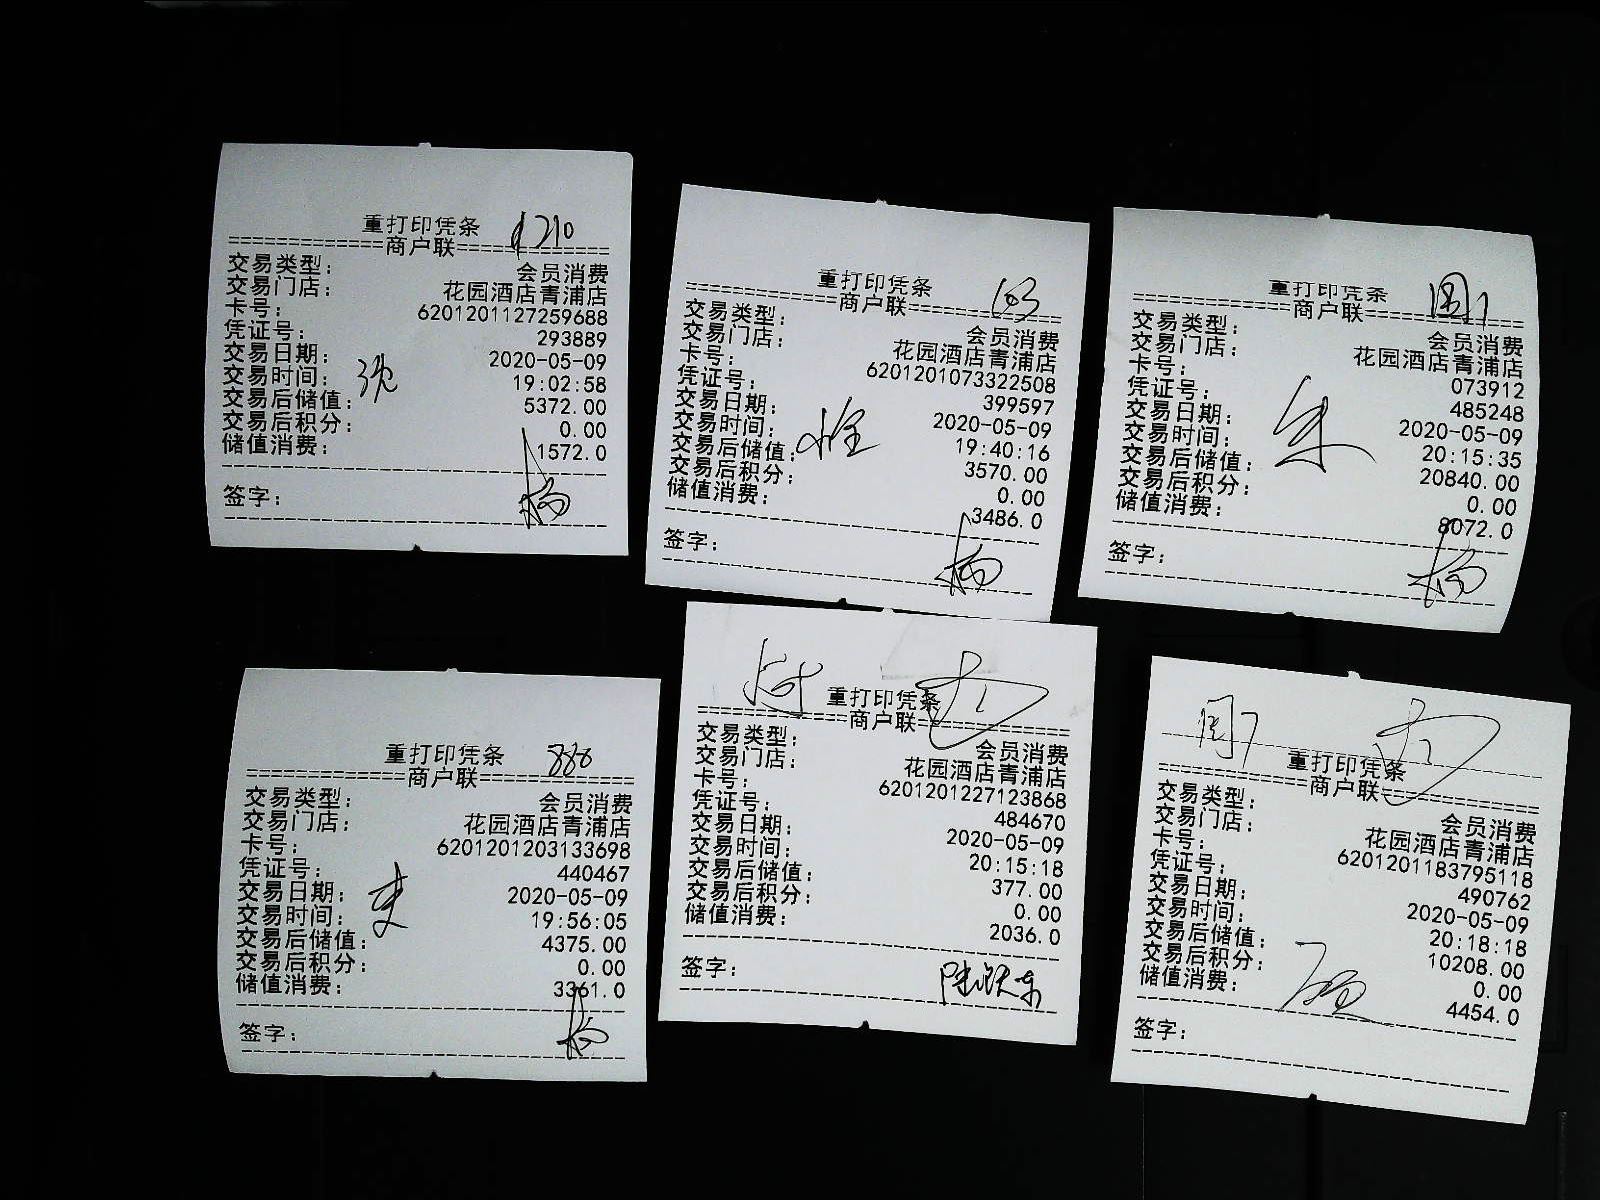 重打印凭条 210
商户联
交易类型： 会员消费
交易门店： 花园酒店青浦店
卡号： 6201201127259688
凭证号： 293889
交易日期： 2020-05-09
交易时间： 19:02:58
交易后储值： 5372.00
交易后积分： 0.00
储值消费： 1572.0
签字： 杨
重打印凭条 103
商户联
交易类型： 会员消费
交易门店： 花园酒店青浦店
卡号： 6201201073322508
凭证号： 399597
交易日期： 2020-05-09
交易时间： 19:40:16
交易后储值： 3570.00
交易后积分： 0.00
储值消费： 3486.0
签字： 杨
重打印凭条
商户联
交易类型： 会员消费
交易门店： 花园酒店青浦店
卡号： 073912
凭证号： 485248
交易日期： 2020-05-09
交易时间： 20:15:35
交易后储值： 20840.00
交易后积分： 0.00
储值消费： 8072.0
签字： 杨
朱
重打印凭条 880
商户联
交易类型： 会员消费
交易门店： 花园酒店青浦店
卡号： 6201201203133698
凭证号： 440467
交易日期： 2020-05-09
交易时间： 19:56:05
交易后储值： 4375.00
交易后积分： 0.00
储值消费： 3361.0
签字： 杨
重打印凭条
商户联
交易类型： 会员消费
交易门店： 花园酒店青浦店
卡号： 6201201227123868
凭证号： 484670
交易日期： 2020-05-09
交易时间： 20:15:18
交易后储值： 377.00
交易后积分： 0.00
储值消费： 2036.0
签字：
重打印凭条
商户联
交易类型： 会员消费
交易门店： 花园酒店青浦店
卡号： 6201201183795118
凭证号： 490762
交易日期： 2020-05-09
交易时间： 20:18:18
交易后储值： 10208.00
交易后积分： 0.00
储值消费： 4454.0
签字：